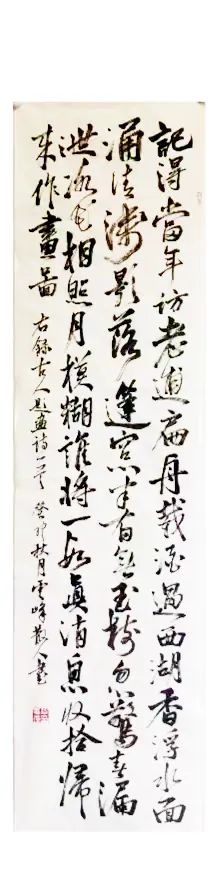 記得當年訪老逋扁舟載酒過西湖香浮水面
涌清淺影落篷窗半有無玉樹忽驚春漏
泄冰花相照月模糊誰將一段真消息收拾歸
來作畫圖 右錄古人題畫詩一首 癸卯秋月雲峰散人書